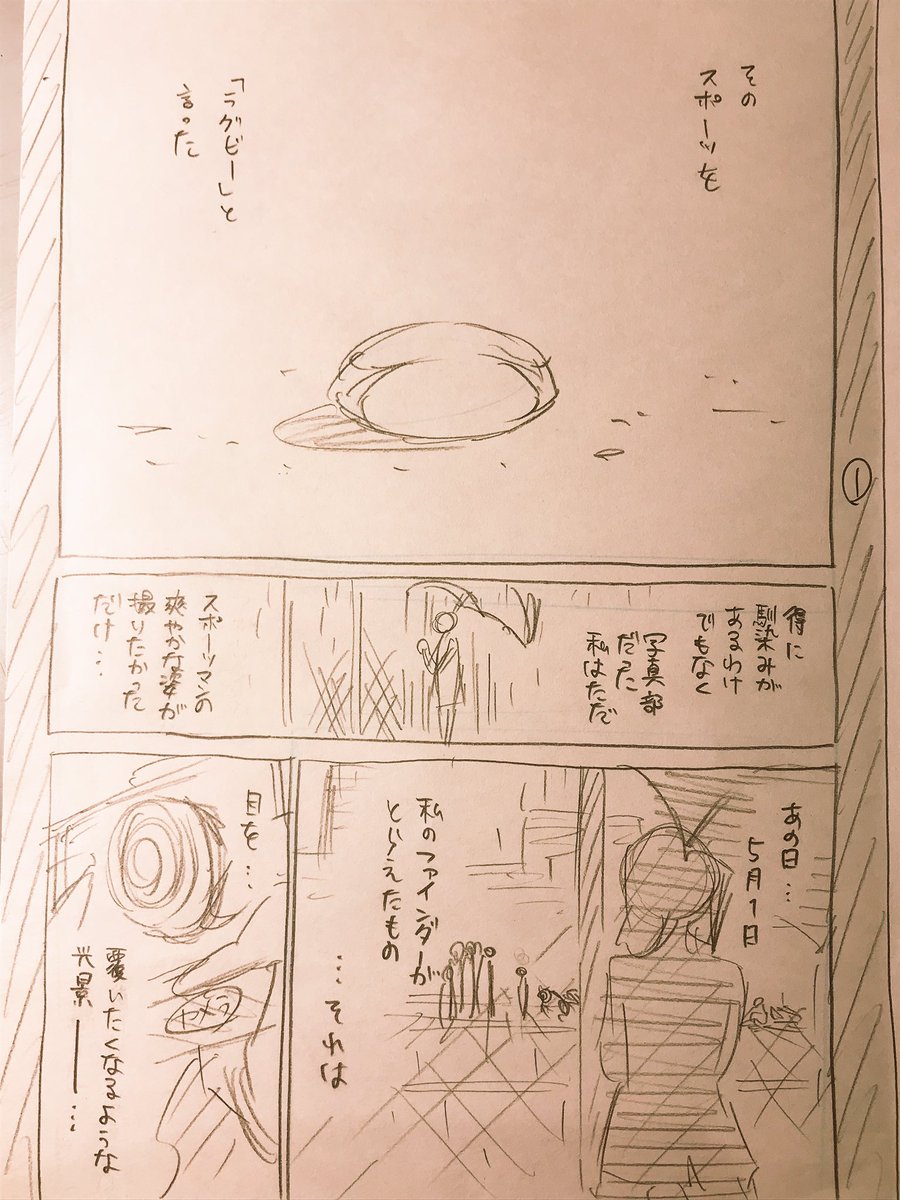 その
スポーツを
「ラグビー」と
言った
①
得に
馴染みが
あるわけ
でもなく
写真部
だった
私はただ
スポーツマンの
爽やかな姿が
撮りたかった
だけ…
あの日…
5月1日
私のファインダーが
といえたもの
…それは
目を…
覆いたくなるような
光景――…